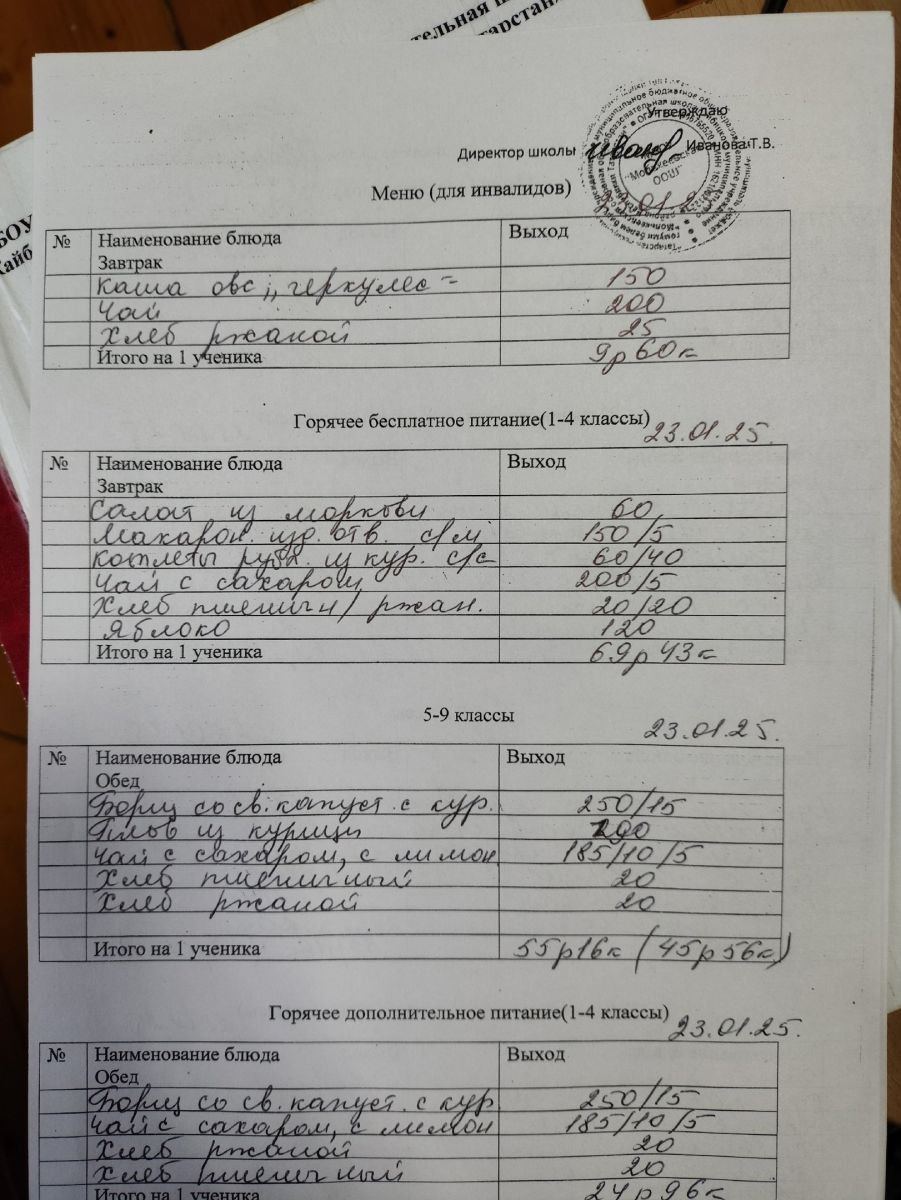 тельная ш
тарстан
БОУ
Кайб
Утверждаю
Директор школы Иванова Т.В.
"Молькеевская ООШ"
Меню (для инвалидов)
№ Наименование блюда Выход
Завтрак
Каша овс „геркулес" 150
Чай 200
Хлеб ржаной 25
Итого на 1 ученика 9р 60к
Горячее бесплатное питание(1-4 классы) 23.01.25.
№ Наименование блюда Выход
Завтрак
Салат из моркови 60
Макарон. изд. отв. с/м 150/5
Котлеты рубл. из кур. с/с 60/40
Чай с сахаром 200/5
Хлеб пшеничн/ ржан. 20/20
Яблоко 120
Итого на 1 ученика 69р 43к
5-9 классы 23.01.25.
№ Наименование блюда Выход
Обед
Борщ со св. капуст. с кур. 250/15
Плов из курицы 200
Чай с сахаром, с лимон 185/10/5
Хлеб пшеничный 20
Хлеб ржаной 20
Итого на 1 ученика 55р16к (45р56к)
Горячее дополнительное питание(1-4 классы) 23.01.25.
№ Наименование блюда Выход
Обед
Борщ со св. капуст. с кур 250/15
Чай с сахаром, с лимон 185/10/5
Хлеб ржаной 20
Хлеб пшеничный 20
Итого на 1 ученика 24р96к